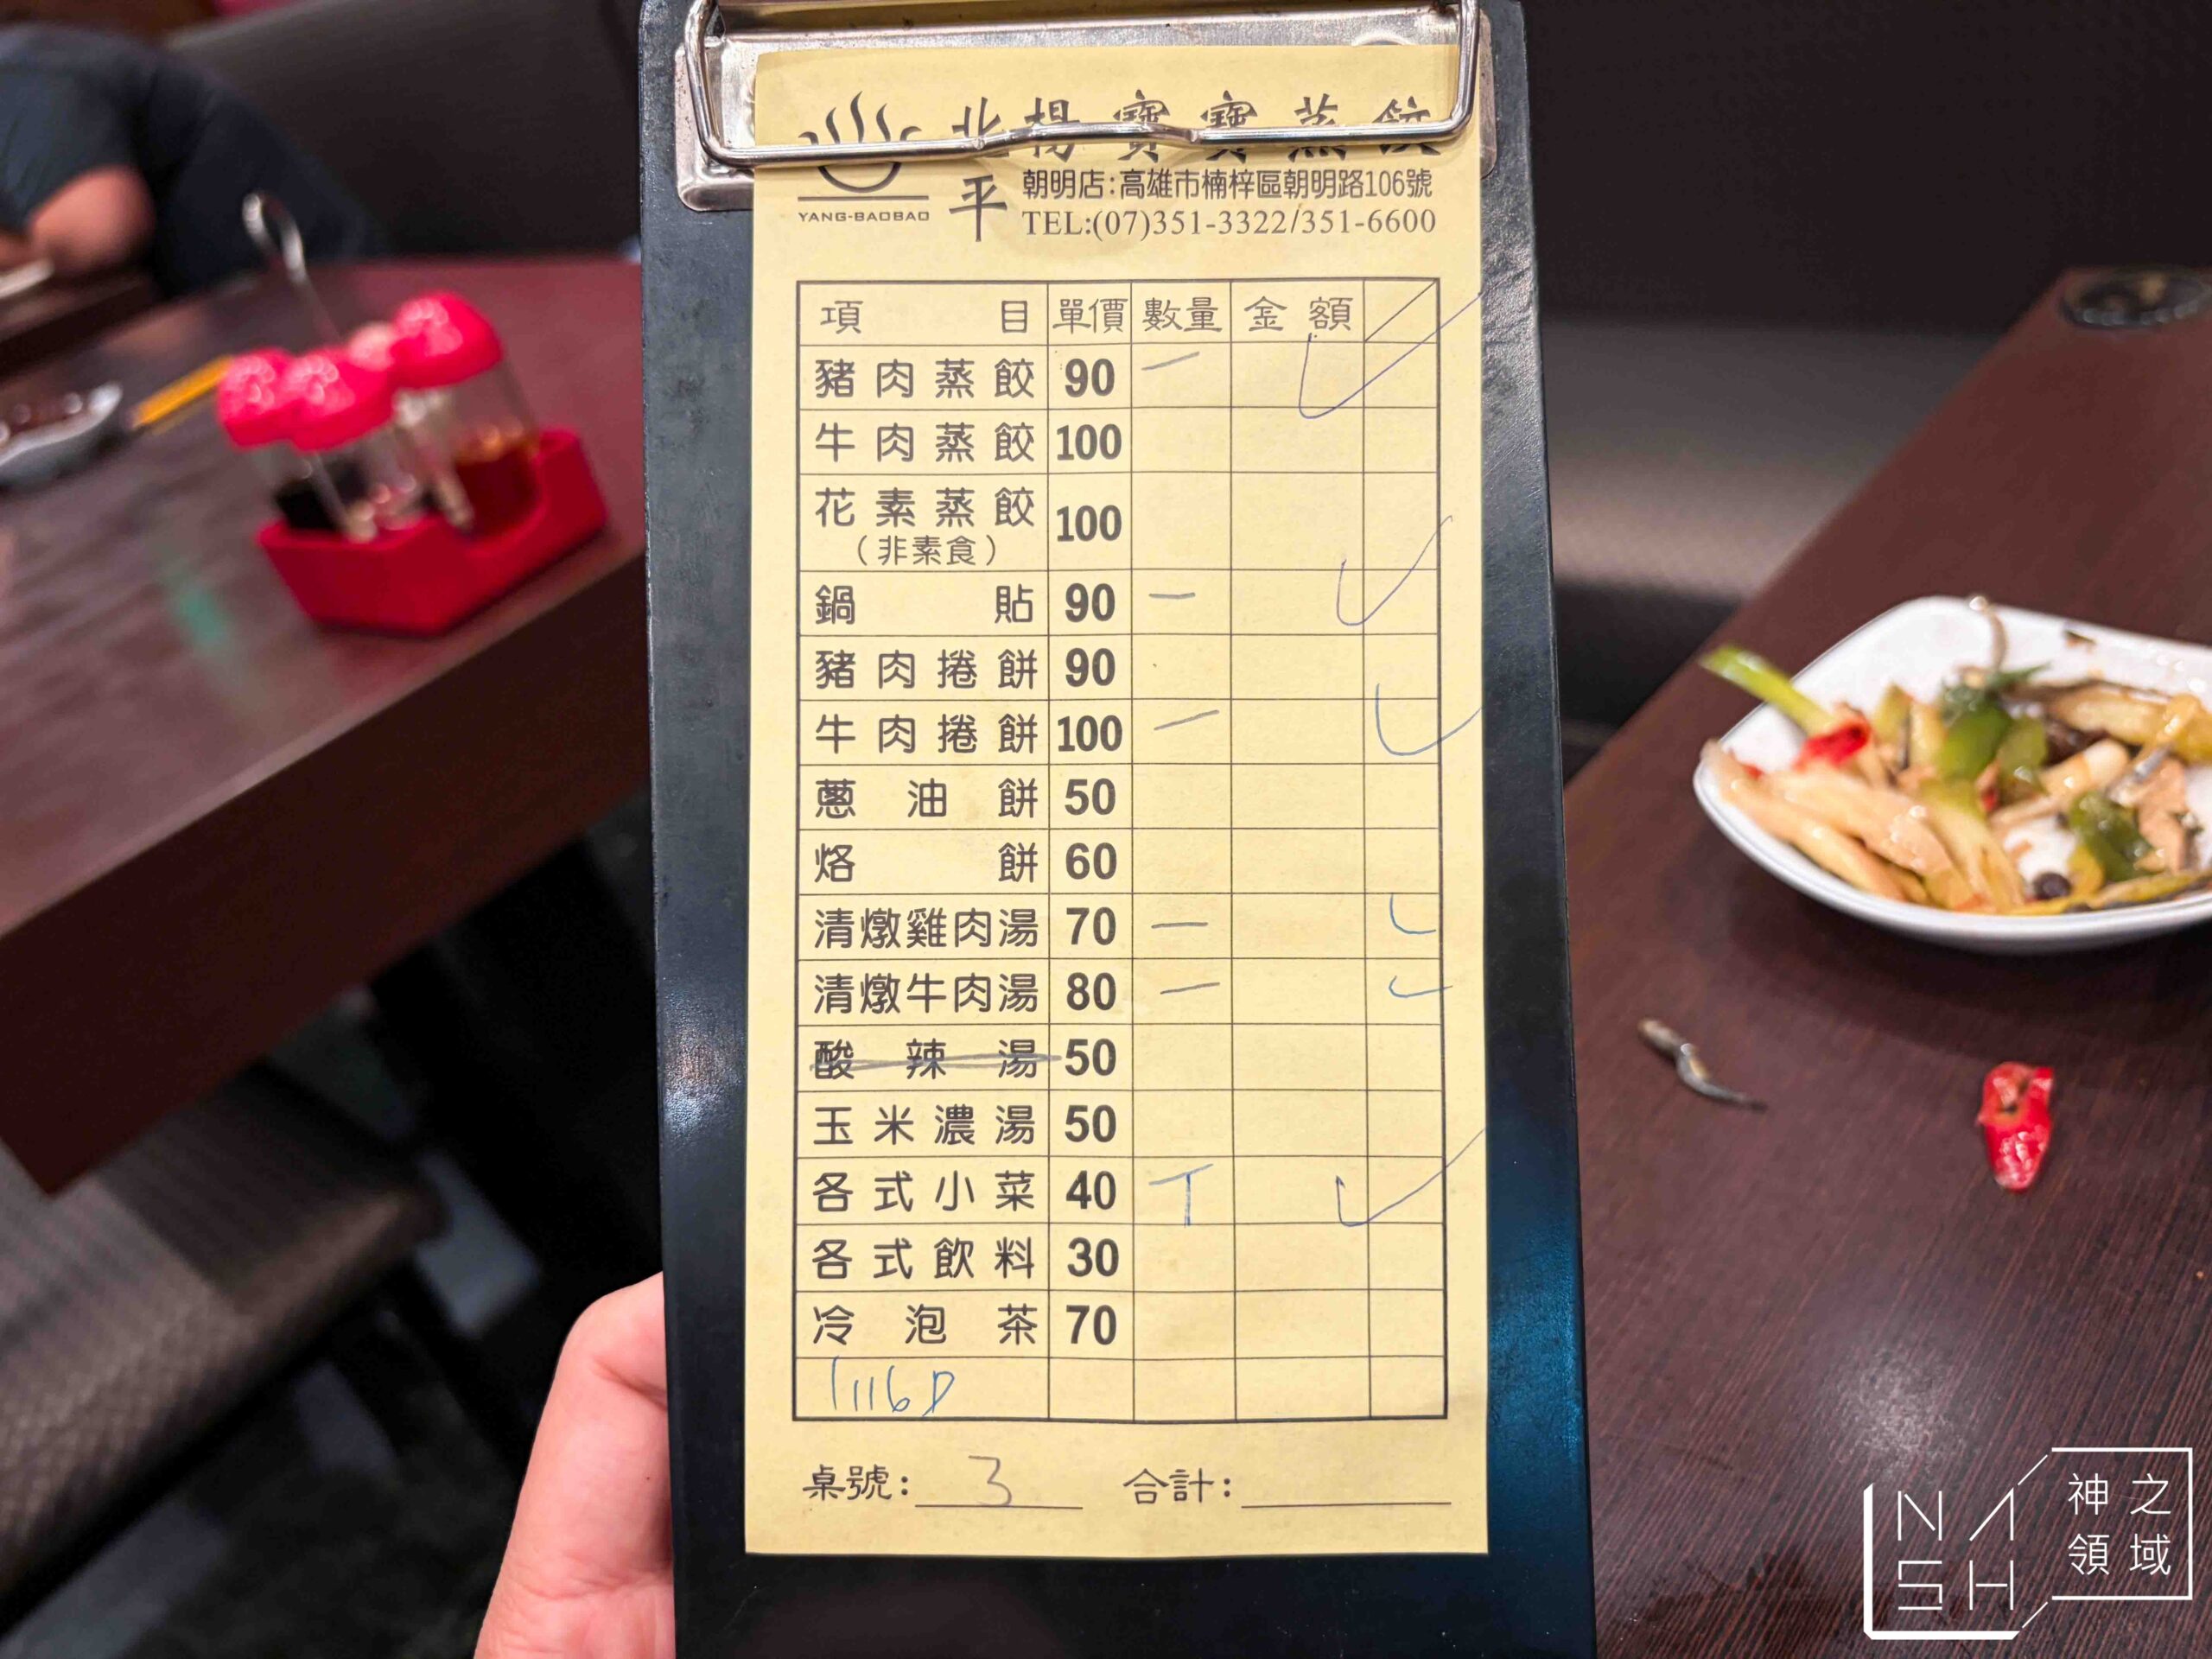 北平 楊寶寶蒸餃
YANG-BAOBAO
朝明店:高雄市楠梓區朝明路106號
TEL:(07)351-3322/351-6600
項目 單價 數量 金額
豬肉蒸餃 90 一
牛肉蒸餃 100
花素蒸餃 100
(非素食)
鍋貼 90 一
豬肉捲餅 90
牛肉捲餅 100 一
蔥油餅 50
烙餅 60
清燉雞肉湯 70 一
清燉牛肉湯 80 一
酸辣湯 50
玉米濃湯 50
各式小菜 40 T
各式飲料 30
冷泡茶 70
桌號: 3 合計:
NASH
神之
領域